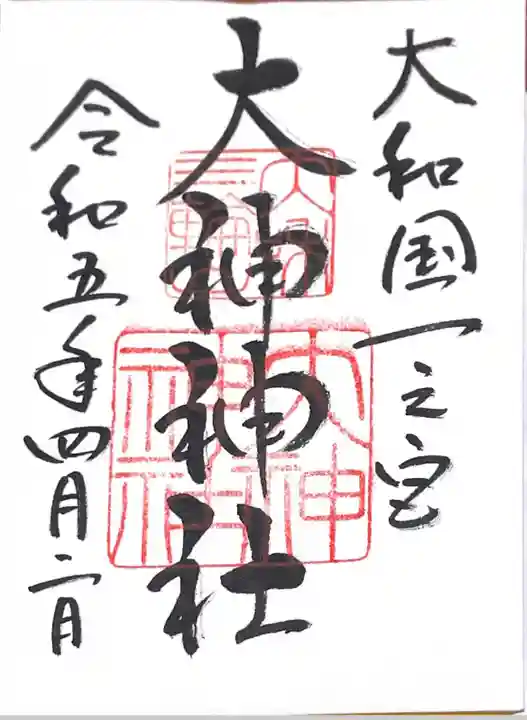 大和国一之宮
大神神社
令和五年四月二日
大神神社